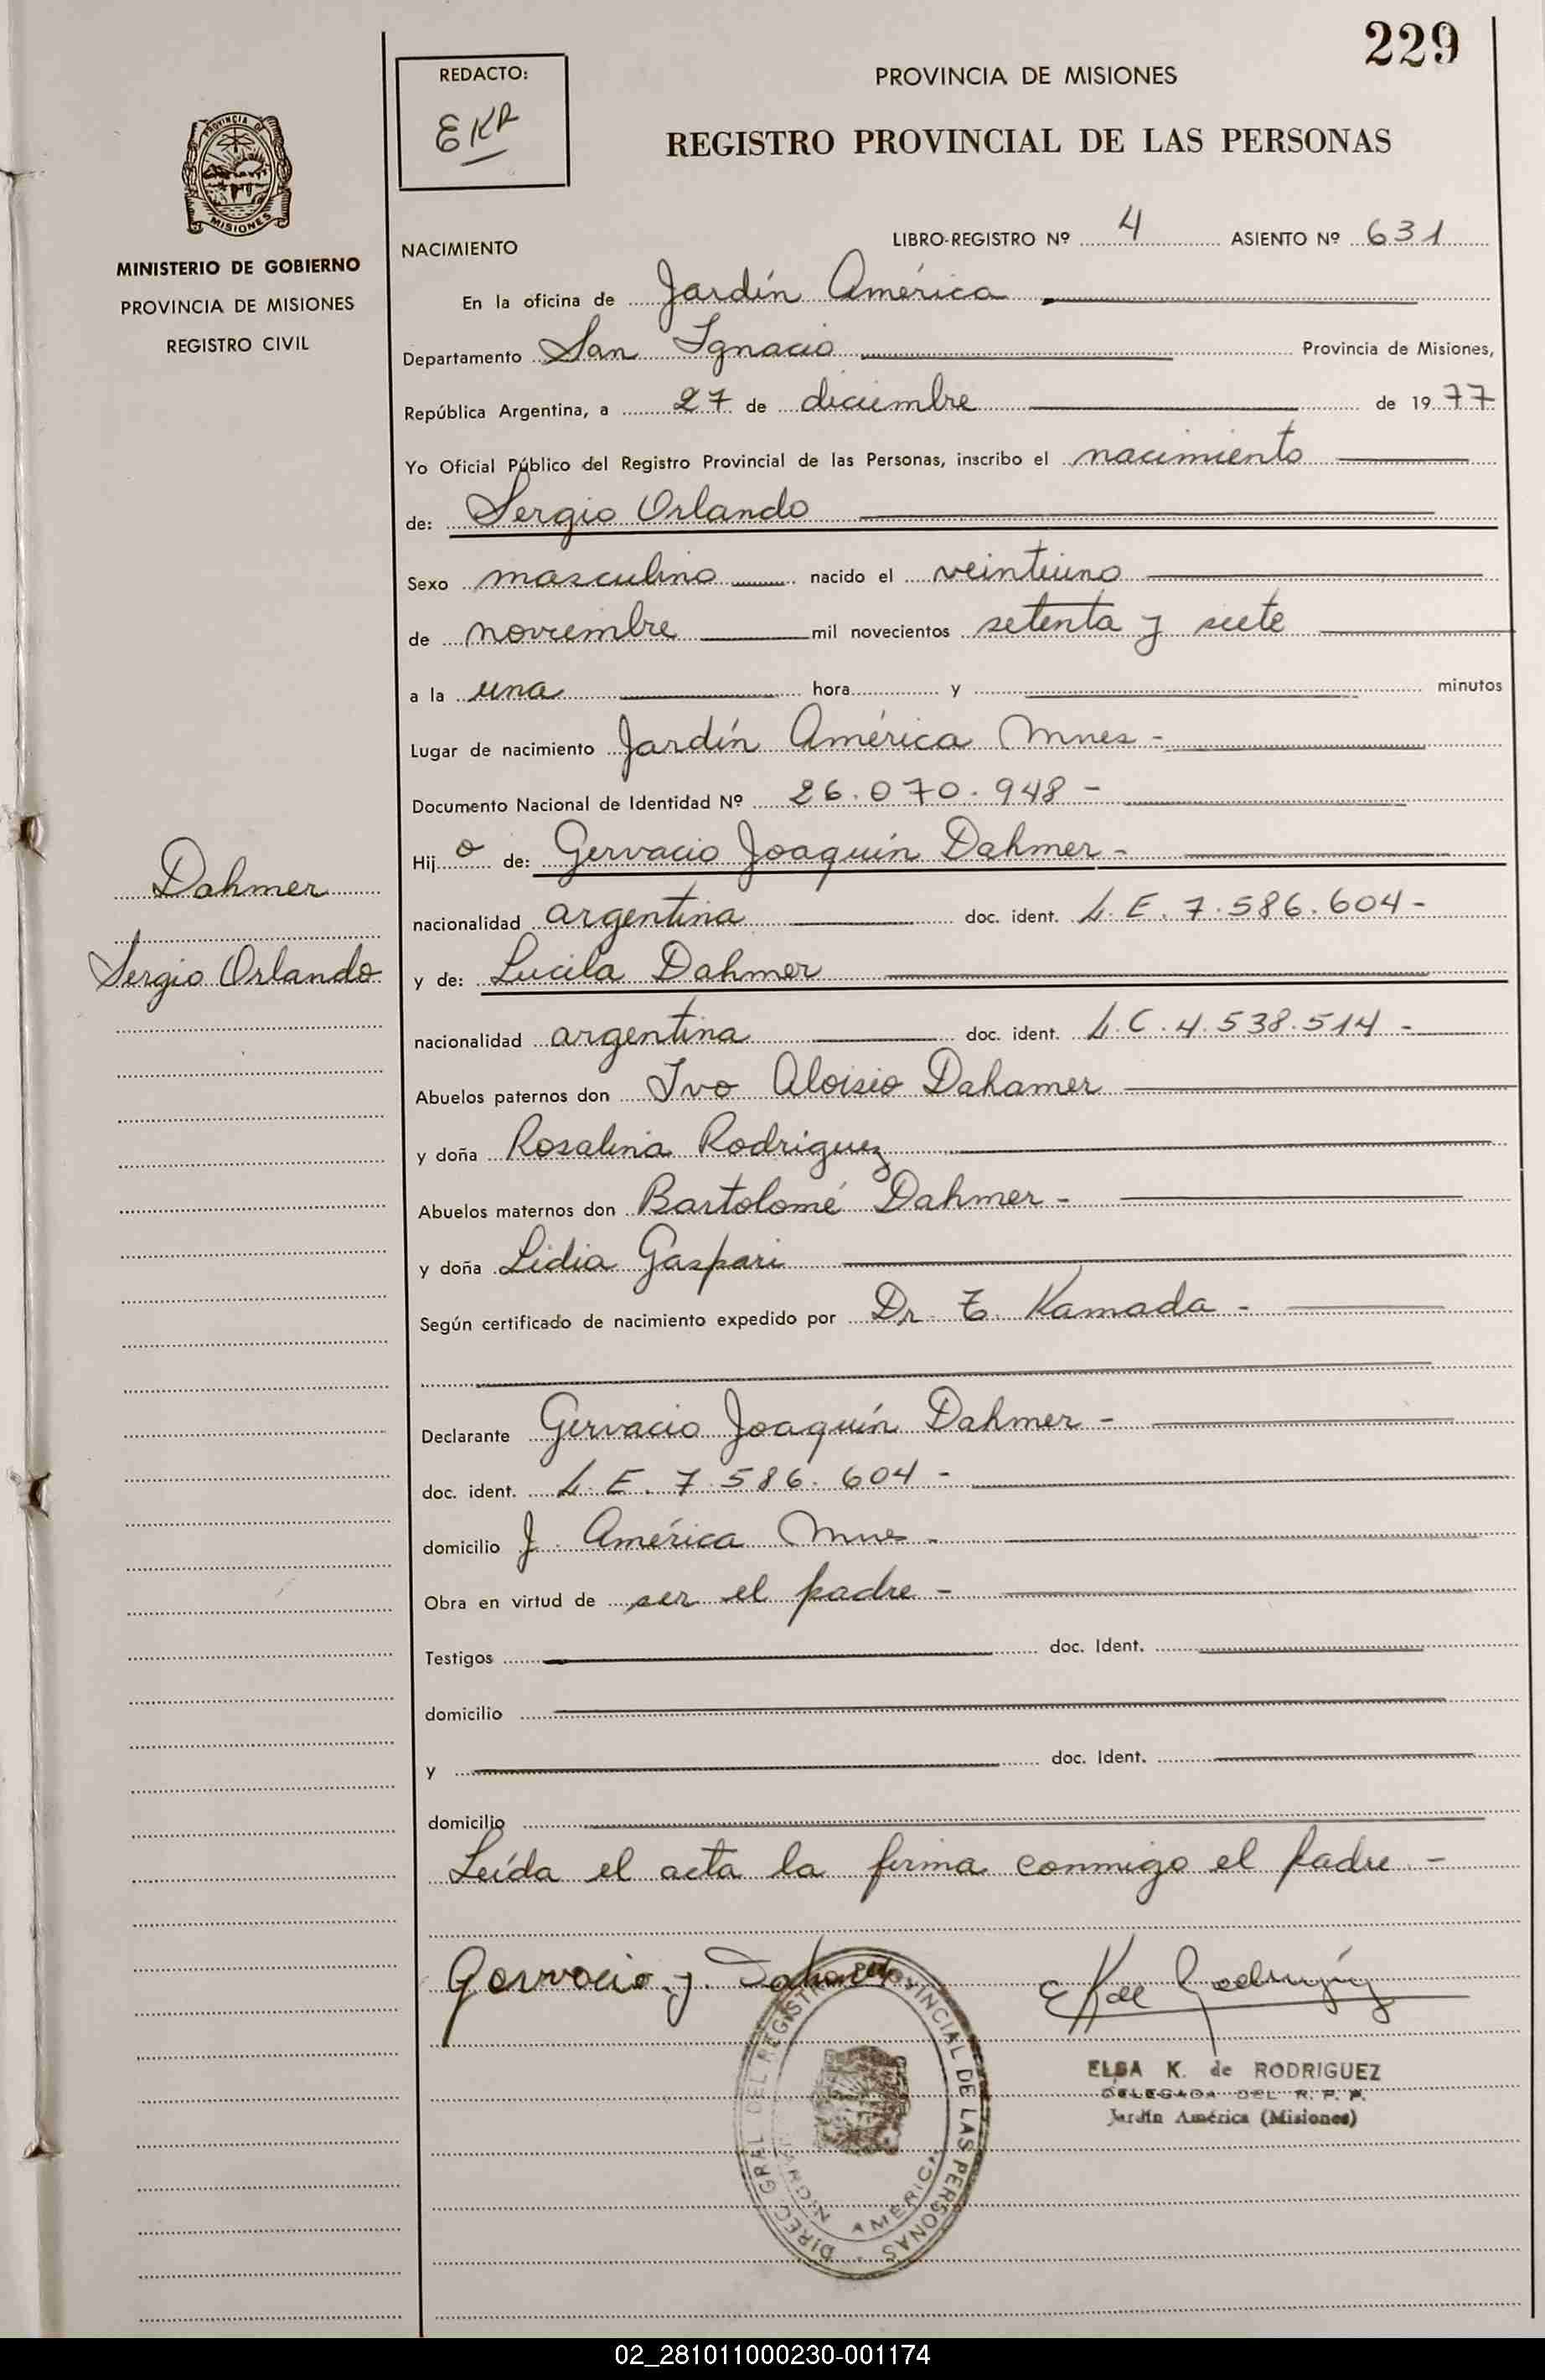 229
REDACTO:
EKR
PROVINCIA DE MISIONES
REGISTRO PROVINCIAL DE LAS PERSONAS
PROVINCIA DE
MISIONES
MINISTERIO DE GOBIERNO
PROVINCIA DE MISIONES
REGISTRO CIVIL
NACIMIENTO
LIBRO-REGISTRO Nº 4 ASIENTO Nº 631
En la oficina de Jardín América
Departamento San Ignacio Provincia de Misiones,
República Argentina, a 27 de diciembre de 1977
Yo Oficial Público del Registro Provincial de las Personas, inscribo el nacimiento
de: Sergio Orlando
Sexo masculino nacido el veintiuno
de noviembre mil novecientos setenta y siete
a la una hora y minutos
Lugar de nacimiento Jardín América Mnes -
Documento Nacional de Identidad Nº 26.070.948 -
Hijo de: Gervacio Joaquín Dahmer -
nacionalidad argentina doc. ident. L.E. 7.586.604 -
y de: Lucila Dahmer
nacionalidad argentina doc. ident. L.C. 4.538.514 -
Abuelos paternos don Ivo Aloisio Dahamer
y doña Rosalina Rodriguez
Abuelos maternos don Bartolomé Dahmer -
y doña Lidia Gaspari
Según certificado de nacimiento expedido por Dr. T. Kamada -
Declarante Gervacio Joaquín Dahmer -
doc. ident. L.E. 7.586.604 -
domicilio J. América Mnes -
Obra en virtud de ser el padre -
Testigos doc. Ident.
domicilio
y doc. Ident.
domicilio
Leída el acta la firma conmigo el padre. -
Dahmer
Sergio Orlando
Gervacio J. Dahmer
EK de Rodriguez
ELSA K. de RODRIGUEZ
DELEGADA DEL R. P. P.
Jardín América (Misiones)
DIREC. GRAL. DEL REGISTRO PROVINCIAL DE LAS PERSONAS
JARDIN AMERICA
02_281011000230-001174